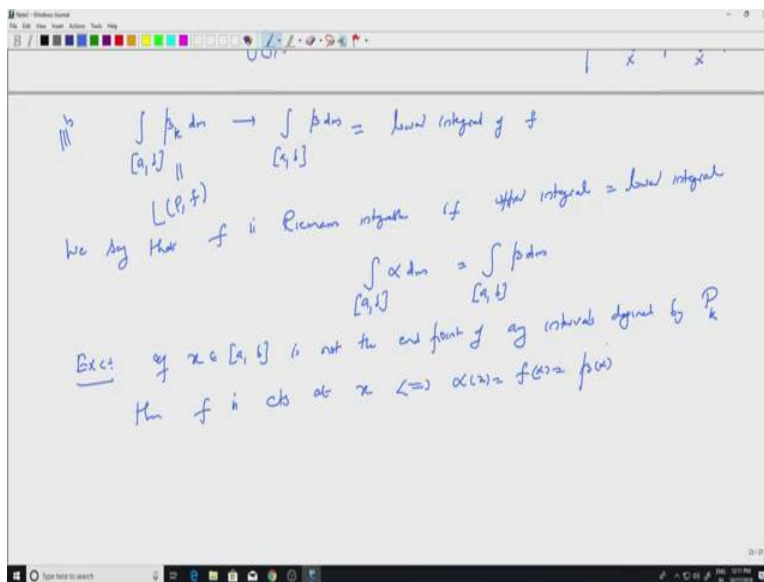 Note1 - Windows Journal
File Edit View Insert Actions Tools Help
|||ly ∫ β_k dm → ∫ β dm = lower integral of f
[a, b] [a, b]
||
L(P, f)
We say that f is Riemann integrable if upper integral = lower integral
∫ α dm = ∫ β dm
[a, b] [a, b]
Exc: If x ∈ [a, b] is not the end point of any intervals defined by P_k
then f is cts at x <=> α(x) = f(x) = β(x)
Type here to search
ENG 12:11 PM